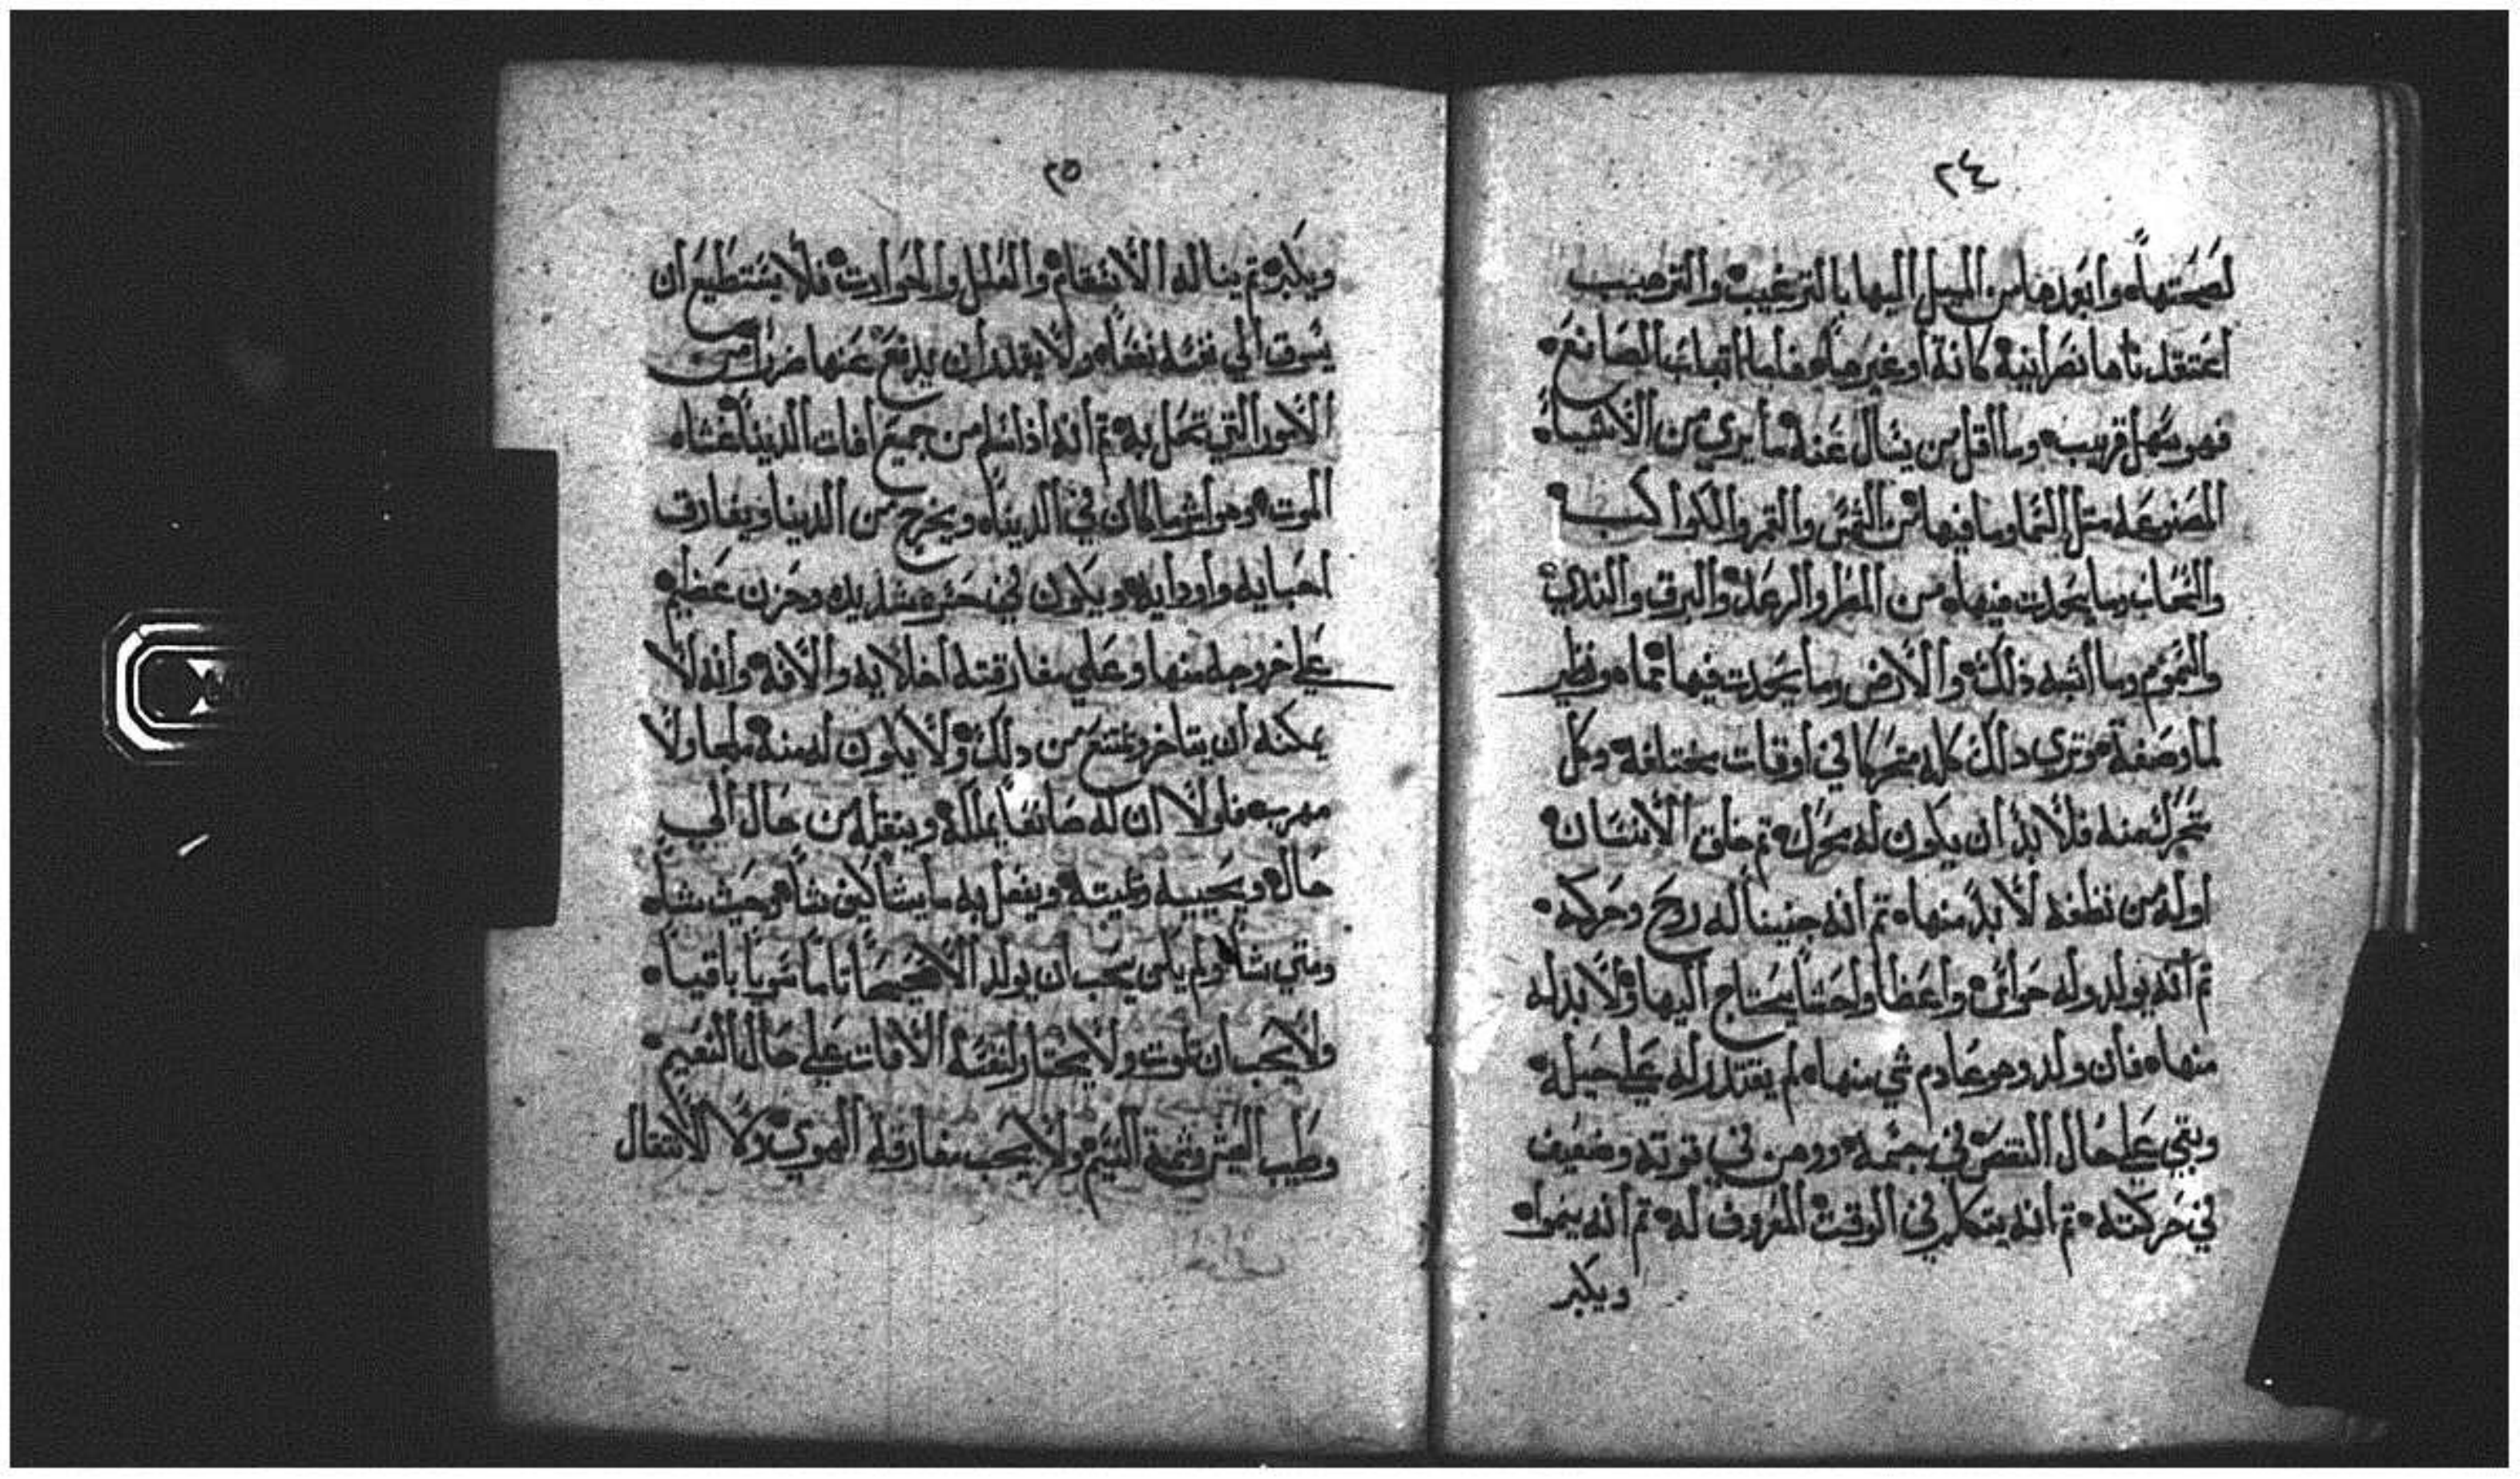 ٢٤
لصحتها وابعدها من الميل اليها بالترغيب والترهيب
اعتقدناها نصرانية كانة او غيرها فاما اتبات الصانع
فهو سهل قريب وما اقل من يسال عنه ما يري من الاشياء
المصنوعه متل السما وما فيها من الشمس والقمر والكواكب
والسحاب وما يحدت منها من المطر والرعد والبرق والندي
والغيوم وما اشبه ذلك والارض وما يحدت فيها مما هو نظير
لما وصفة وتري دلك كله متحركا في اوقات مختلفه وكل
متحرك منه فلا بد ان يكون له محرك تم خلق الانسان
اوله من نطفه لا بد منها تم انه جنينا له روح وحركه
تم انه يولد وله حواس واعضا واحشا يحتاج اليها ولا بد له
منها فان ولد وهو عادم شي منها لم يقتدر له علي حيلة
وبقي علي حال النقص في جسمه ووهن في قوته وضعف
في حركته تم انه يتكلم في الوقت المعروف له تم انه ينموا
ويكبر
٢٥
ويكبر تم يناله الاسقام والعلل والحوادت فلا يستطيع ان
يسوق الي نفسه نفعا ولا يقدر ان يدفع عنها ضرا من
الامور التي تحل به تم انه اذا سلم من جميع افات الدنيا غشاه
الموت وهو اشر ما كان في الدنيا ويخرج من الدنيا ويفارق
احبايه واودايه ويكون في حسرة شديده وحزن عظيم
علي خروجه منها وعلي مفارقته اخلايه والافه وانه لا
يمكنه ان يتاخر ويمتنع من دلك ولا يكون له منه ملجا ولا
مهرب فلولا ان له صانعا يملكه وينقله من حال الي
حال ويحييه ويميته ويفعل به ما يشا كيف شا وحيت شا
ومتي شا ولم يكن يجب ان يولد الا صحيحا تاما سويا باقيا
ولا يجب ان يموت ولا يختار لنفسه الافات علي حال النعيم
وطيب العيش وشمة النسيم ولا يجب مفارقة الهوي ولا الانتقال